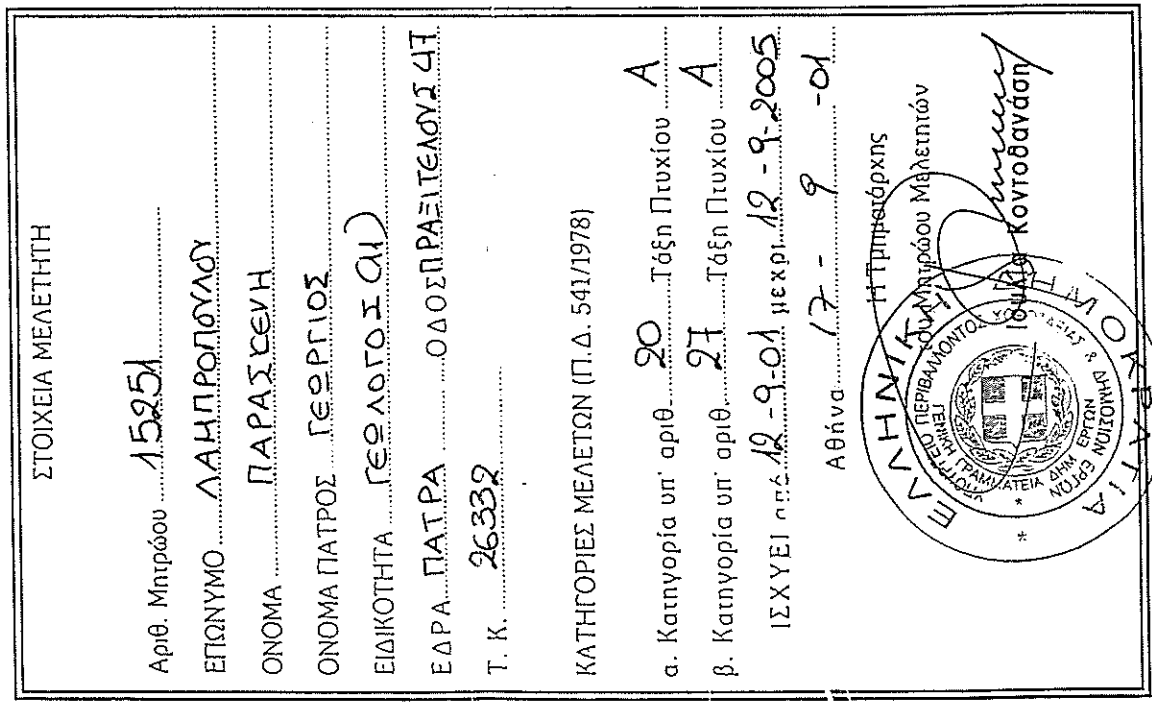 ΣΤΟΙΧΕΙΑ ΜΕΛΕΤΗΤΗ
Αριθ. Μητρώου 15251
ΕΠΩΝΥΜΟ ΛΑΜΠΡΟΠΟΥΛΟΥ
ΟΝΟΜΑ ΠΑΡΑΣΚΕΥΗ
ΟΝΟΜΑ ΠΑΤΡΟΣ ΓΕΩΡΓΙΟΣ
ΕΙΔΙΚΟΤΗΤΑ ΓΕΩΛΟΓΟΣ
ΕΔΡΑ ΠΑΤΡΑ ΟΔΟΣ ΠΡΑΞΙΤΕΛΟΥΣ 47
Τ. Κ. 26332
ΚΑΤΗΓΟΡΙΕΣ ΜΕΛΕΤΩΝ (Π.Δ. 541/1978)
α. Κατηγορία υπ' αριθ. 20 Τάξη Πτυχίου Α
β. Κατηγορία υπ' αριθ. 27 Τάξη Πτυχίου Α
ΙΣΧΥΕΙ από 12-9-01 μεχρι 12-9-2005
Αθήνα 17-9-01
Η Τμηματάρχης
του Μητρώου Μελετητών
Ιουλία Κοντοθανάση
ΕΛΛΗΝΙΚΗ ΔΗΜΟΚΡΑΤΙΑ
ΥΠΟΥΡΓΕΙΟ ΠΕΡΙΒΑΛΛΟΝΤΟΣ & ΔΗΜΟΣΙΩΝ ΕΡΓΩΝ
ΓΕΝΙΚΗ ΓΡΑΜΜΑΤΕΙΑ ΔΗΜ. ΕΡΓΩΝ